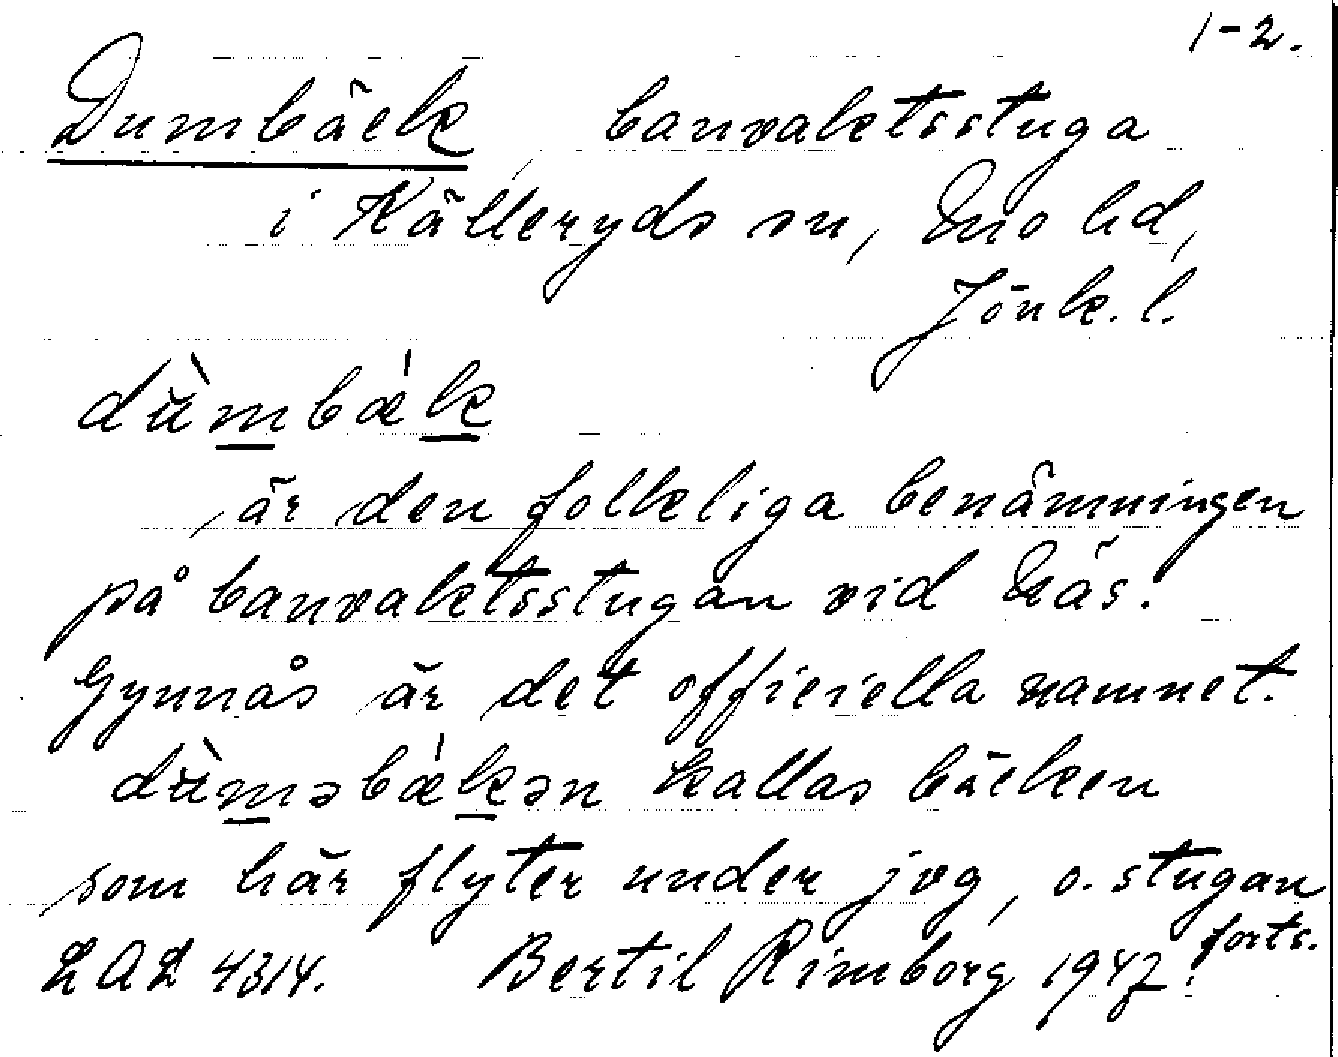 1-2.
Dumbäck, banvaktsstuga
i Källeryds sn, Mo hd,
Jönk. l.
dùmbæ̀k
är den folkliga benämningen
på banvaktsstugan vid Näs.
Gynnås är det officiella namnet.
dùməbæ̀kən kallas bäcken
som här flyter under jvg, o. stugan
forts.
LAL 4314. Bertil Rimborg 1947.